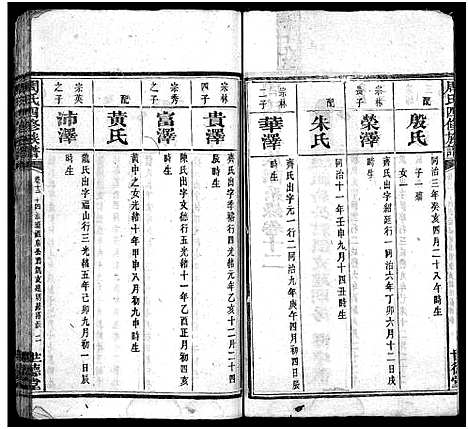 周氏四修族譜
殷氏
同治三年癸亥四月二十八午時生
子一
女一
宗林長子
榮澤
齊氏出字紹延行一同治六年丁卯六月十二日戌時生
配
朱氏
同治十一年壬申九月十四丑時生
宗林二子
華澤
齊氏出字元一行二同治九年庚午四月初三日時生
宗林四子
貴澤
齊氏出字季裕行四光緒元年乙亥十二月二十四辰時生
宗秀之子
富澤
陳氏出字文彬行五光緒十一年乙酉正月初三亥時生
配
黃氏
黃中之女光緒十年甲申八月初九申時生
宗英之子
沛澤
龍氏出字福山行三光緒五年己卯九月初一日辰時生
周氏四修族譜
世德堂
世德堂